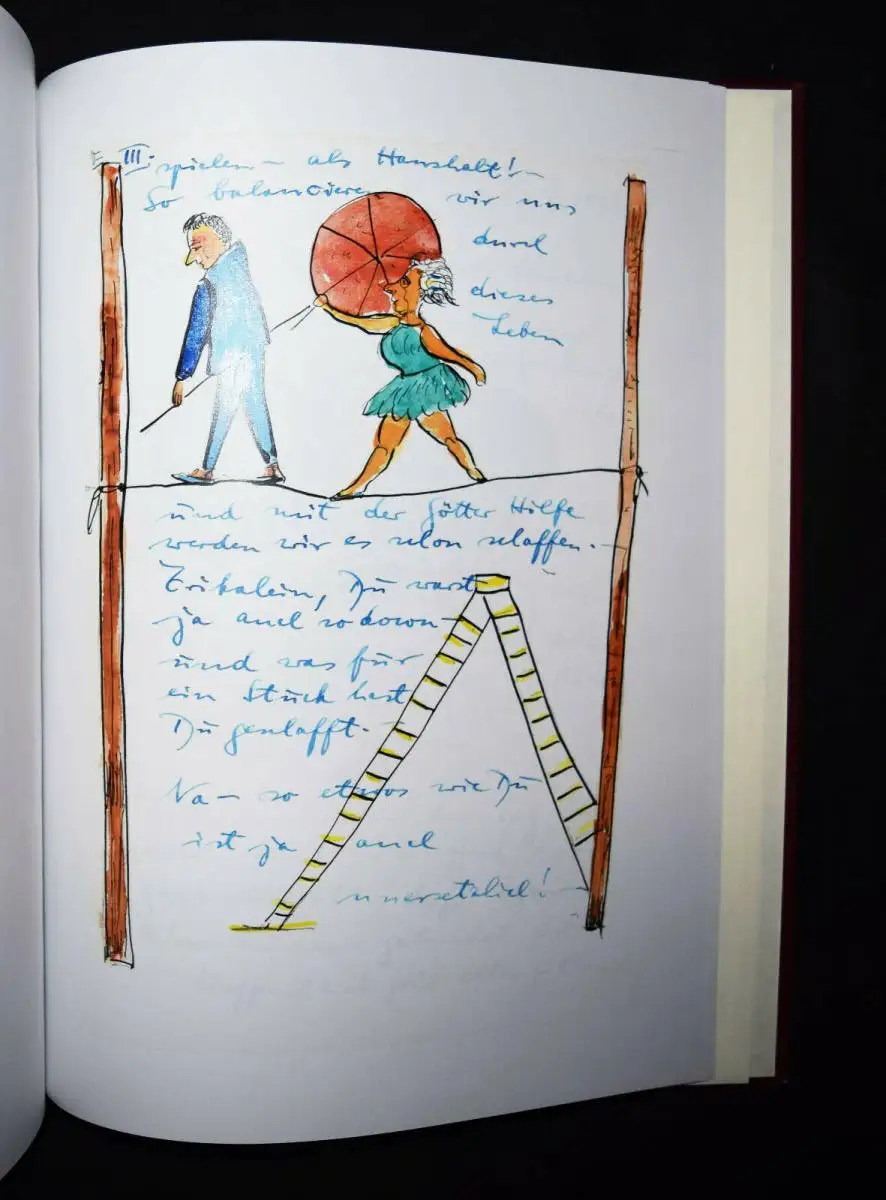 III.
spielen – als Haushalt! –
So balancieren wir uns
durch
dieses
Leben
und mit der Götter Hilfe
werden wir es schon schaffen. –
Erikalein, Du warst
ja auch so down –
und was für
ein Stück hast
Du geschafft. –
Na – so etwas wie Du
ist ja auch
unersetzlich! –